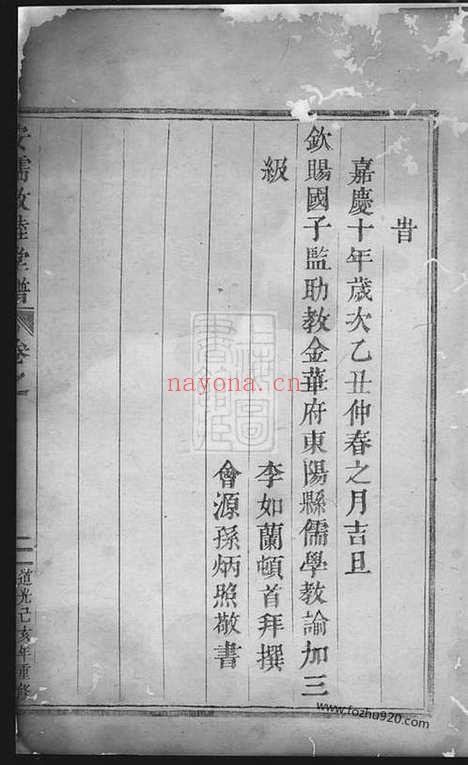 旹
嘉慶十年歲次乙丑仲春之月吉旦
欽賜國子監助敎金華府東陽縣儒學敎諭加三
級
李如蘭頓首拜撰
會源孫炳照敬書
儒敦睦堂譜
卷之一
二
道光己亥年重修
nayona.cn
www.fozhu920.com